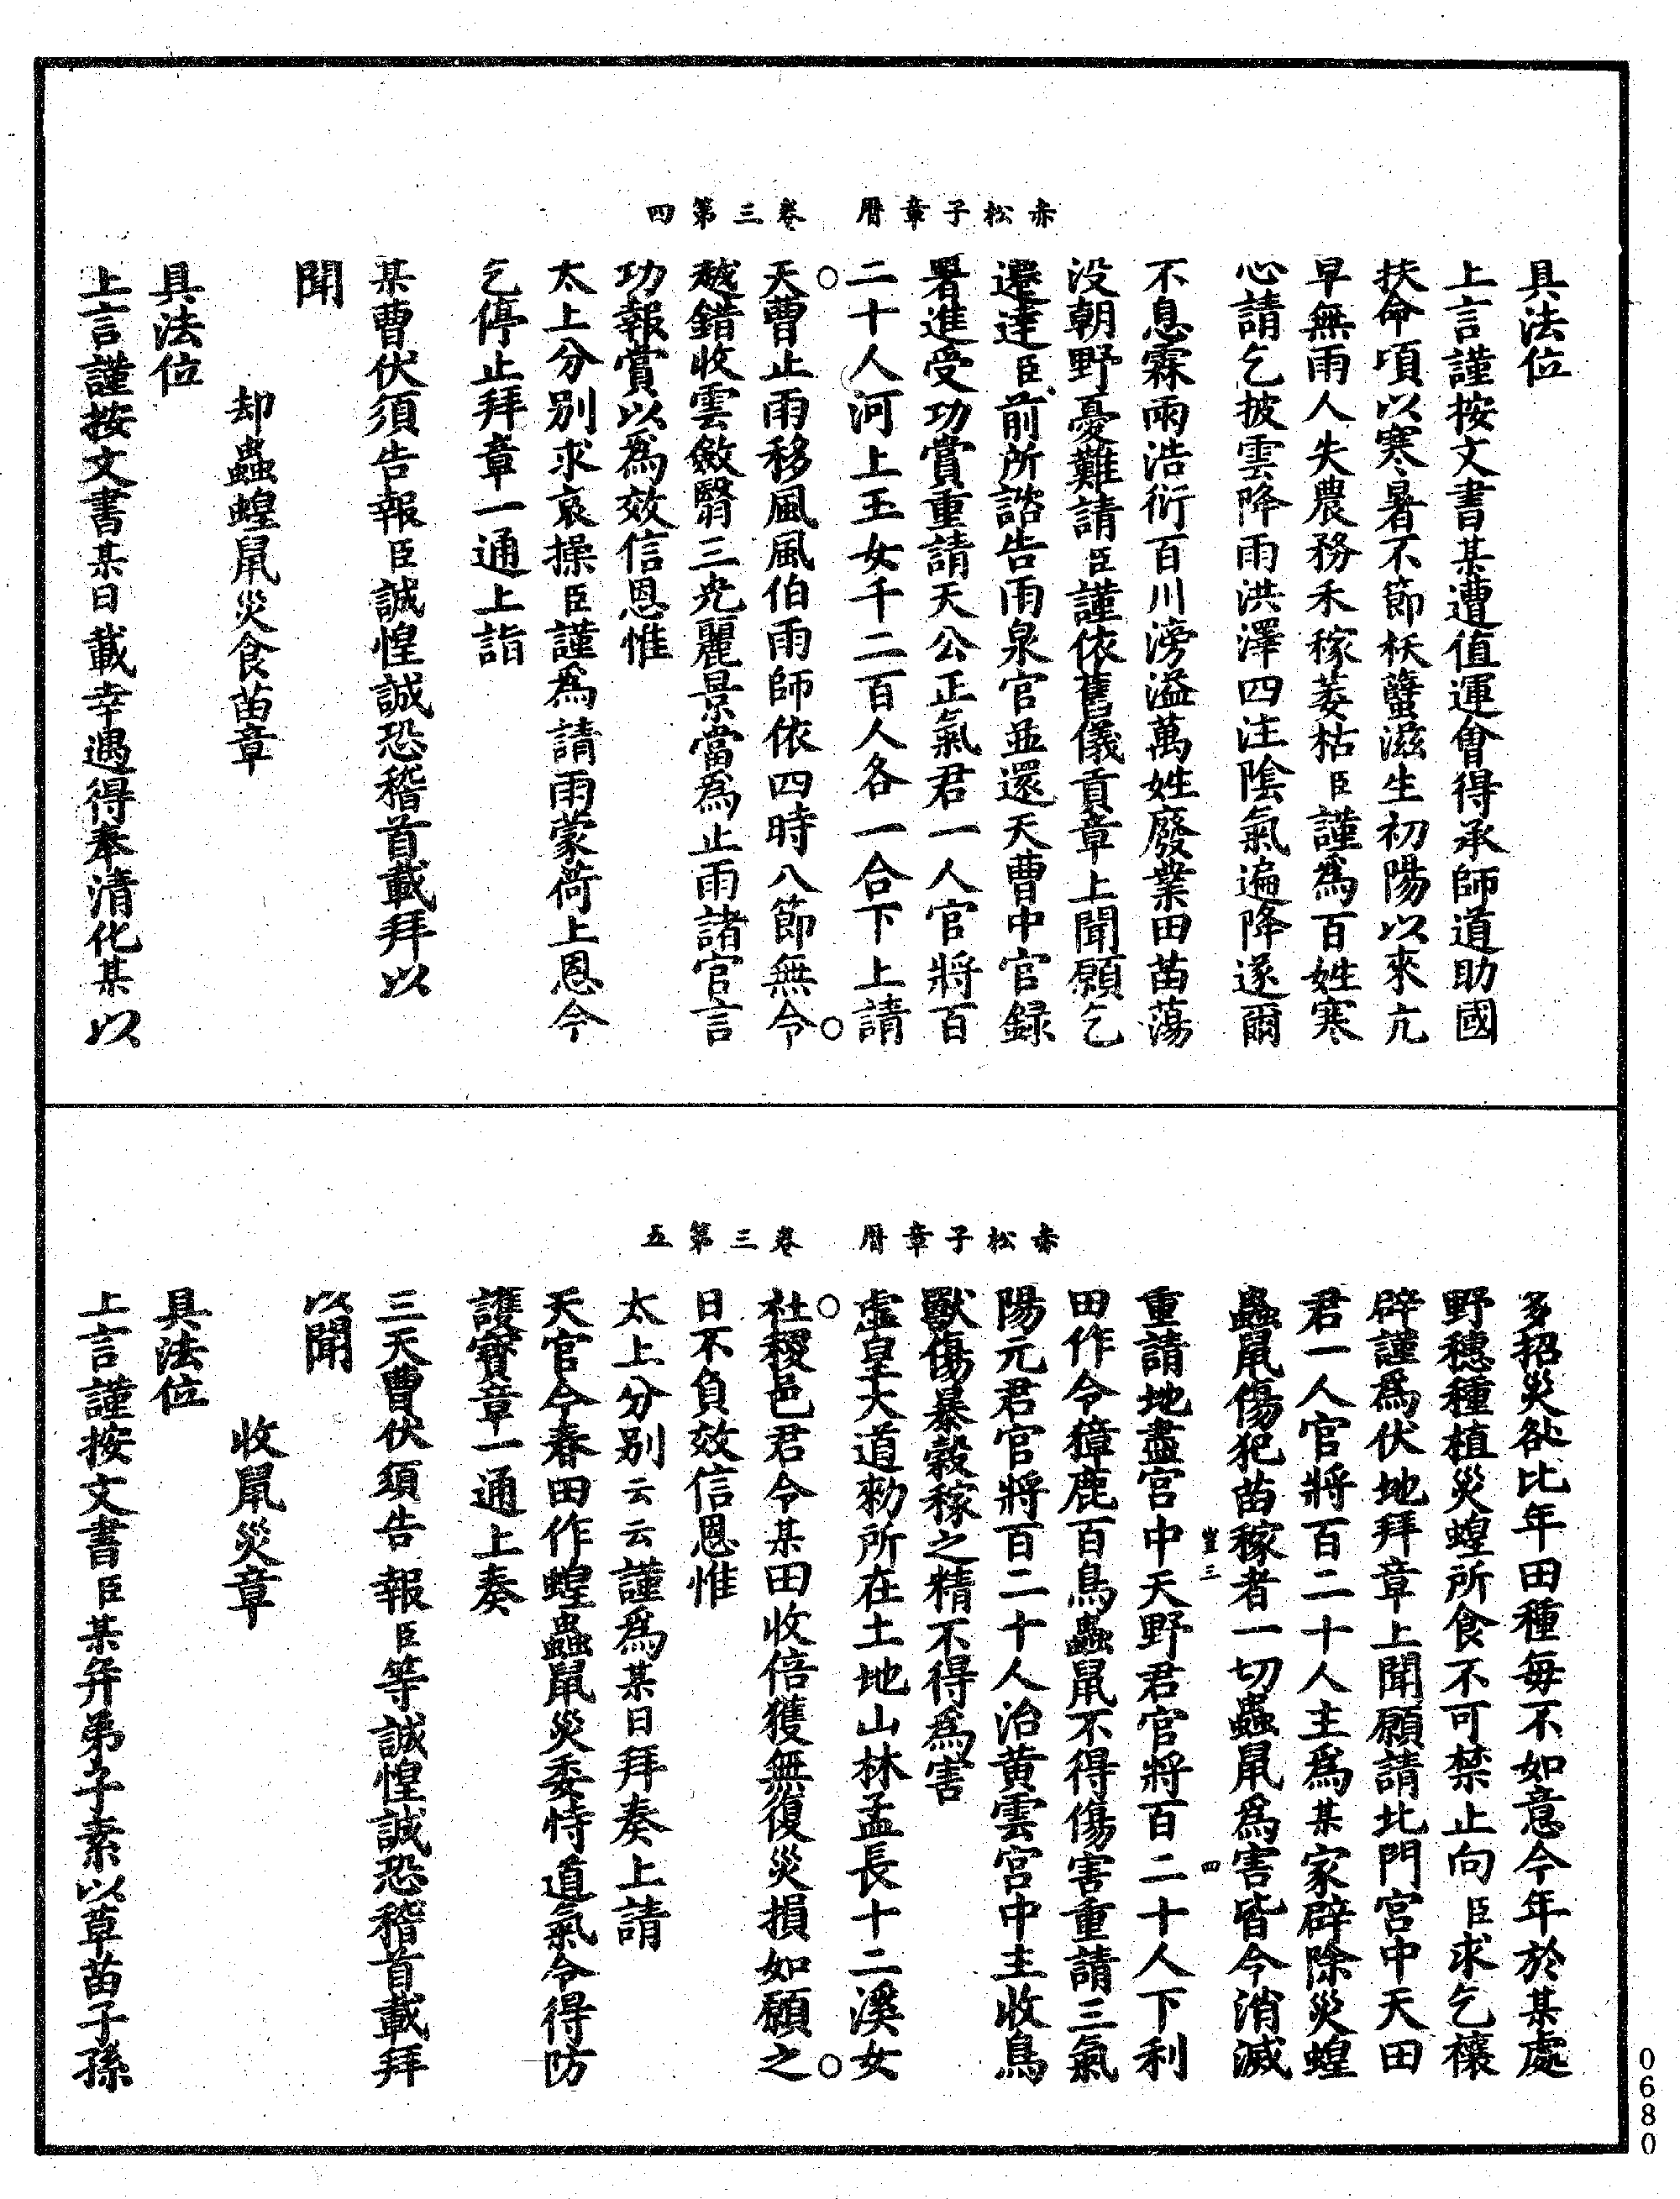 赤松子章曆　卷三第四
具法位
上言謹按文書某遭值運會得承師道助國
扶命項以寒暑不節祅蠥滋生初陽以來亢
旱無雨人失農務禾稼萎枯臣謹為百姓寒
心請乞披雲降雨洪澤四注陰氣遍降遂爾
不息霖雨浩衍百川滂溢萬姓廢業田苗蕩
没朝野憂難請臣謹依舊儀貢章上聞願乞
遷達臣前所諮告雨泉官並還天曹中官録
署進受功賞重請天公正氣君一人官將百
二十人河上玉女千二百人各一合下上請
天曹止雨移風風伯雨師依四時八節無令
越錯收雲斂翳三光麗景當為止雨諸官言
功報賞以為效信恩惟
太上分別求哀操臣謹為請雨蒙荷上恩今
乞停止拜章一通上詣
某曹伏須告報臣誠惶誠恐稽首載拜以
聞
却蟲蝗鼠災食苗章
具法位
上言謹按文書某日載幸遇得奉清化某以
赤松子章曆　卷三第五
多招災咎比年田種每不如意今年於某處
野穗種植災蝗所食不可禁止向臣求乞禳
辟謹為伏地拜章上聞願請北門宮中天田
君一人官將百二十人主為某家辟除災蝗
蟲鼠傷犯苗稼者一切蟲鼠為害皆令消滅
豈三
四
重請地盡宮中天野君官將百二十人下利
田作令獐鹿百鳥蟲鼠不得傷害重請三氣
陽元君官將百二十人治黃雲宮中主收鳥
獸傷暴穀稼之精不得為害
虛皇大道勑所在土地山林孟長十二溪女
社稷邑君令某田收倍獲無復災損如願之
日不負效信恩惟
太上分別云云謹為某日拜奏上請
天官今春田作蝗蟲鼠災委恃道氣令得防
護寶章一通上奏
三天曹伏須告報臣等誠惶誠恐稽首載拜
以聞
收鼠災章
具法位
上言謹按文書臣某并弟子素以草苗子孫
0680